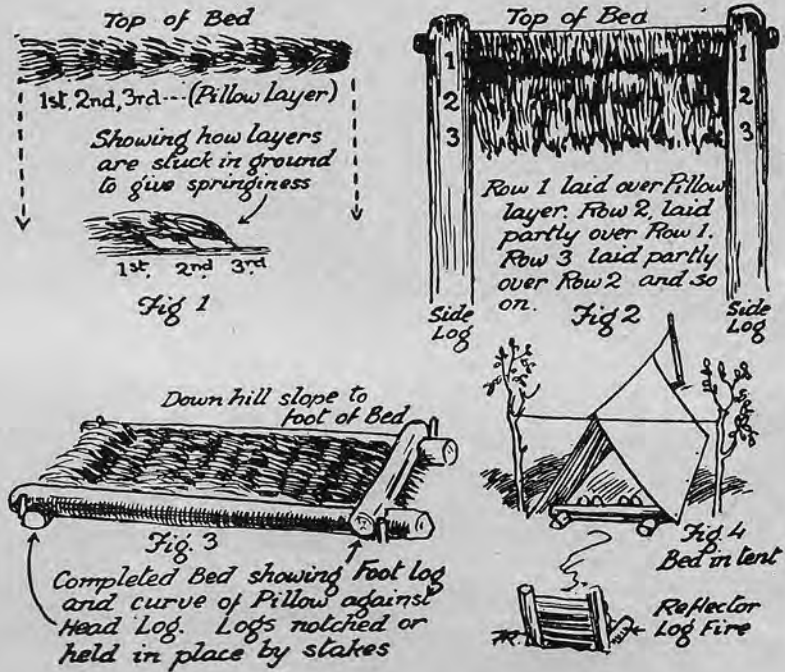 Top of Bed
1st, 2nd, 3rd---(Pillow layer)
Showing how layers
are stuck in ground
to give springiness
1st, 2nd 3rd
Fig 1
Top of Bed
1
2
3
1
2
3
Row 1 laid over Pillow
layer. Row 2, laid
partly over Row 1.
Row 3 laid partly
over Row 2 and so
on.
Side
Log
Fig 2
Side
Log
Down hill slope to
foot of Bed
Fig. 3
Completed Bed showing Foot log
and curve of Pillow against
Head Log. Logs notched or
held in place by stakes
Fig. 4
Bed in tent
Reflector
Log Fire